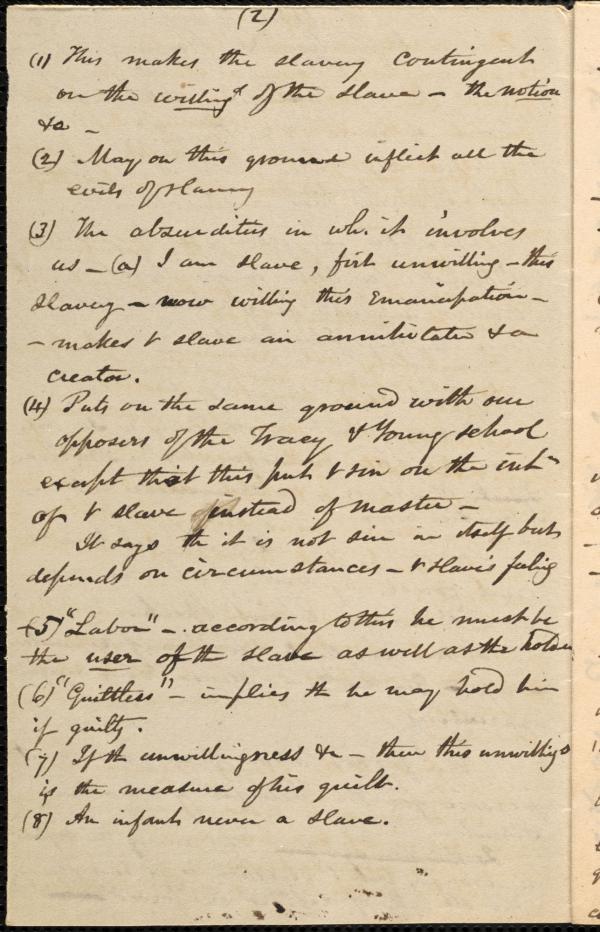 (2)
(1) This makes the slavery contingent
on the willing of the slave – the notion
&c –
(2) May on this ground inflict all the
evils of slavery
(3) The absurdities in wh. it involves
us – (a) I am slave, first unwilling – this
slavery – now willing this Emancipation –
– makes t slave an annihilator & a
creator.
(4) Puts on the same ground with our
opposers of the Tracy & Young school
except that this puts t sin on the
of t slave instead of master –
It says th it is not sin in itself but
depends on circumstances – t slave's feeling
(5) "Labor" – according to this he must be
the user of th slave as well as the holder
(6) "Guiltless" – implies th he may hold him
if guilty.
(7) If th unwillingness &c – then this unwillings
is the measure of his guilt.
(8) An infant never a slave.